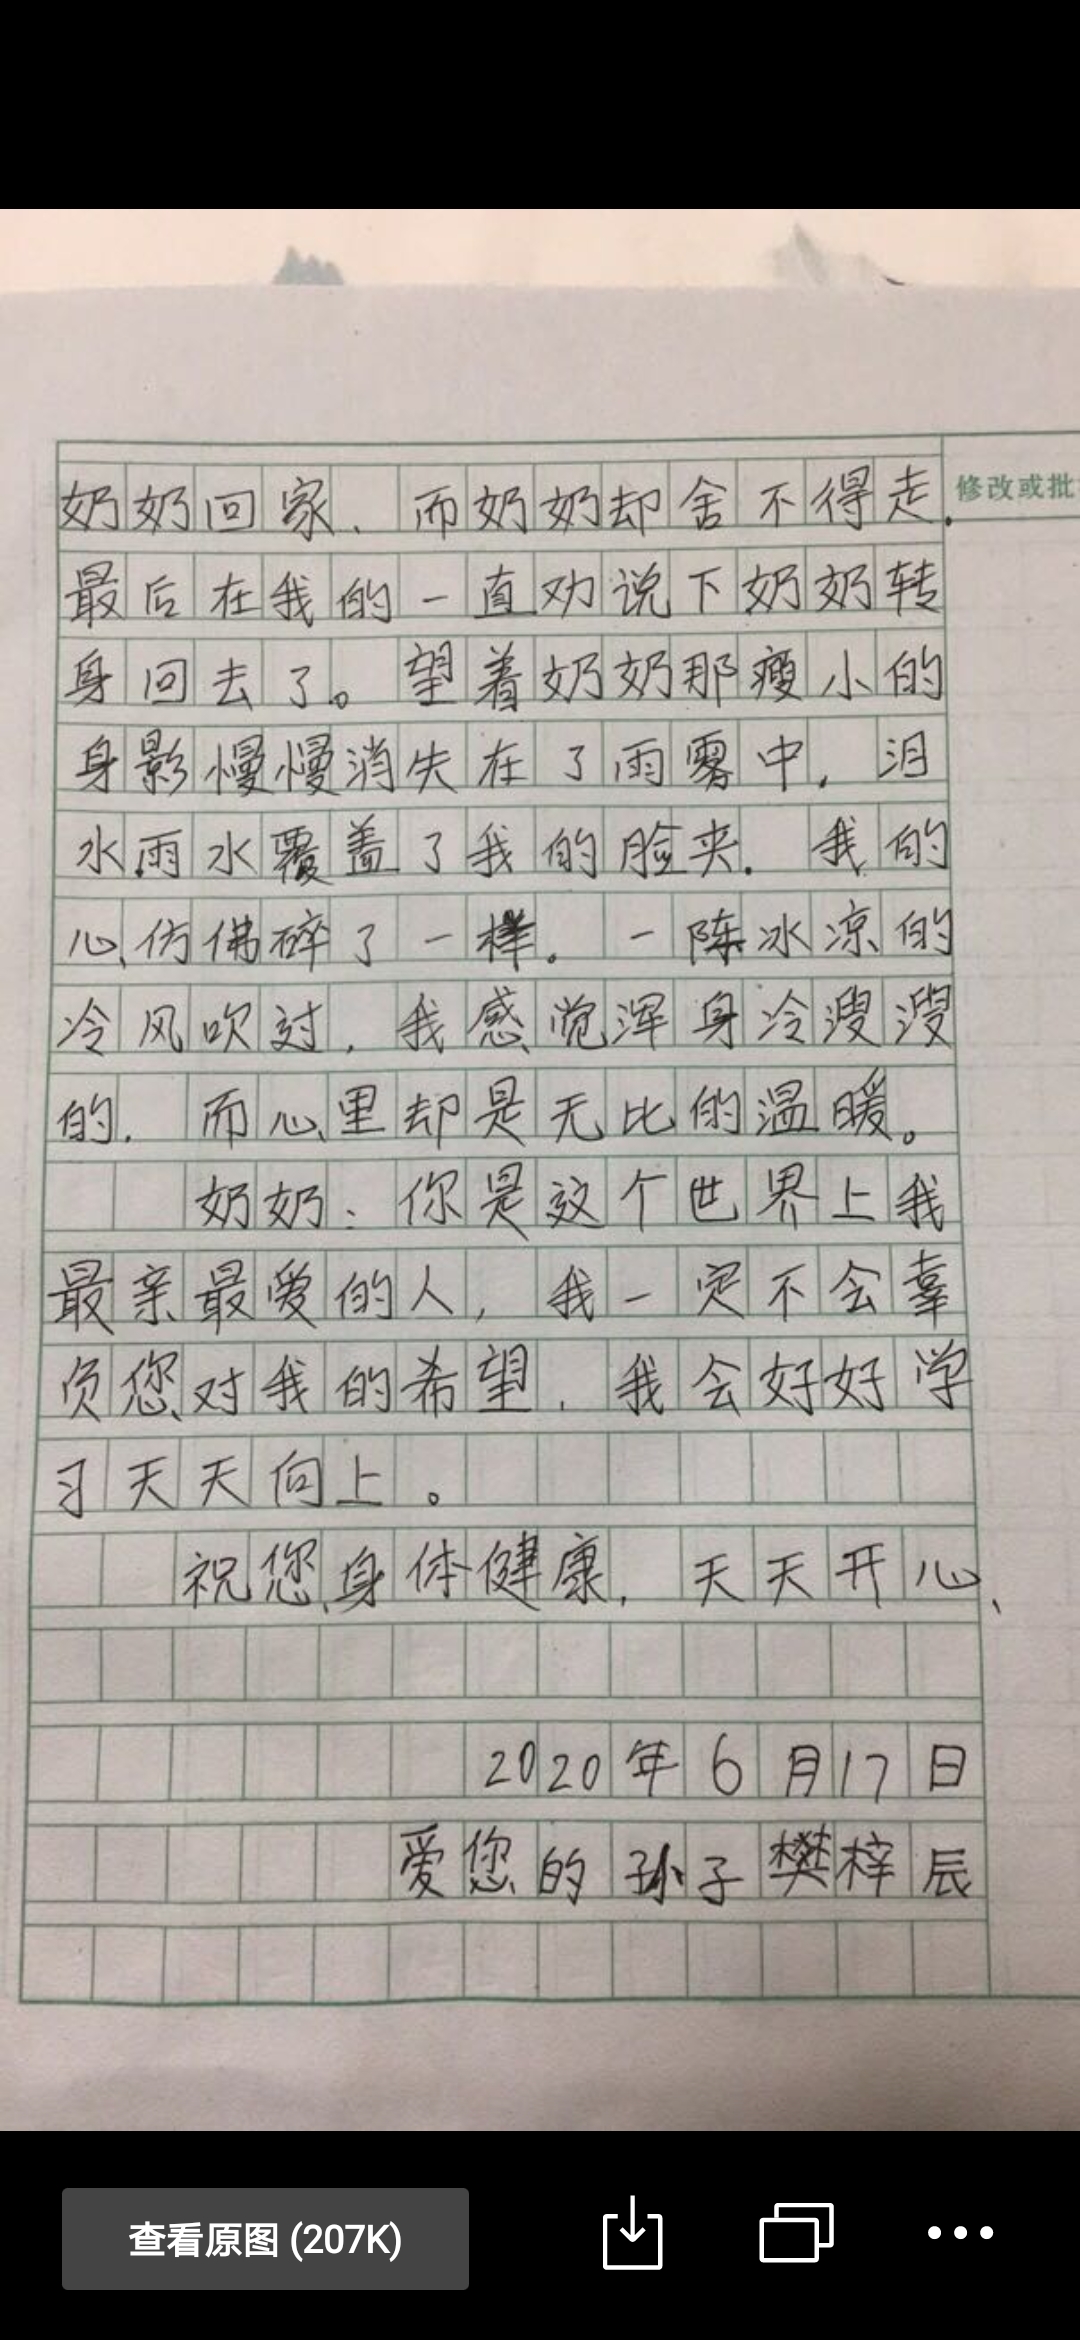 奶奶回家、而奶奶却舍不得走.
修改或批
最后在我的一直劝说下奶奶转
身回去了。望着奶奶那瘦小的
身影慢慢消失在了雨雾中，泪
水雨水覆盖了我的脸夹.我的
心仿佛碎了一样。一陈冰凉的
冷风吹过，我感觉浑身冷溲溲
的.而心里却是无比的温暖。
奶奶：你是这个世界上我
最亲最爱的人，我一定不会辜
负您对我的希望.我会好好学
习天天向上。
祝您身体健康.天天开心、
2020年6月17日
爱您的孙子樊梓辰
查看原图 (207K)